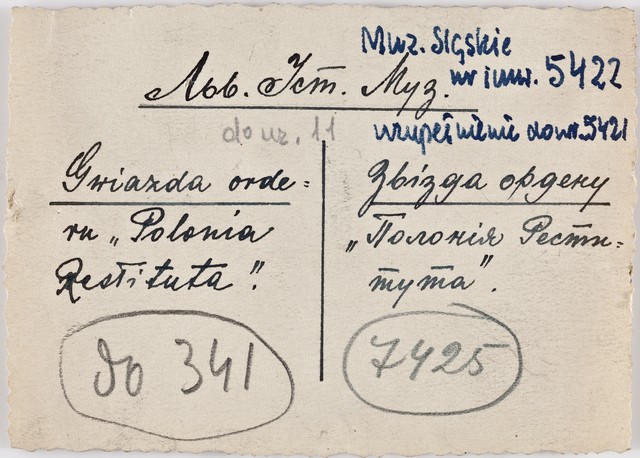 Muz. Śląskie
nr inw. 5422
Льв. Іст. Муз.
do nr. 11
uzupełnienie do nr. 5421
Gwiazda orde=
ru „Polonia
Restituta".
Звізда ордену
„Полонія Рести=
тута".
do 341
7425